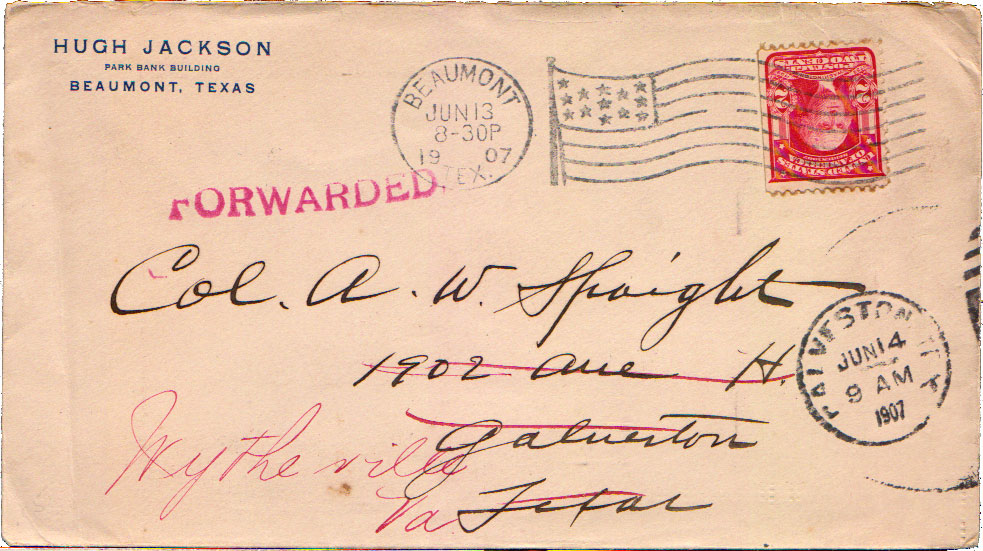 HUGH JACKSON
PARK BANK BUILDING
BEAUMONT, TEXAS
BEAUMONT
JUN 13
8-30P
19 07
TEX.
FORWARDED
Col. A. W. Spaight
1902 Ave H.
Galveston
Texas
Wytheville
Va
GALVESTON
JUN 14
9 AM
1907
2 2